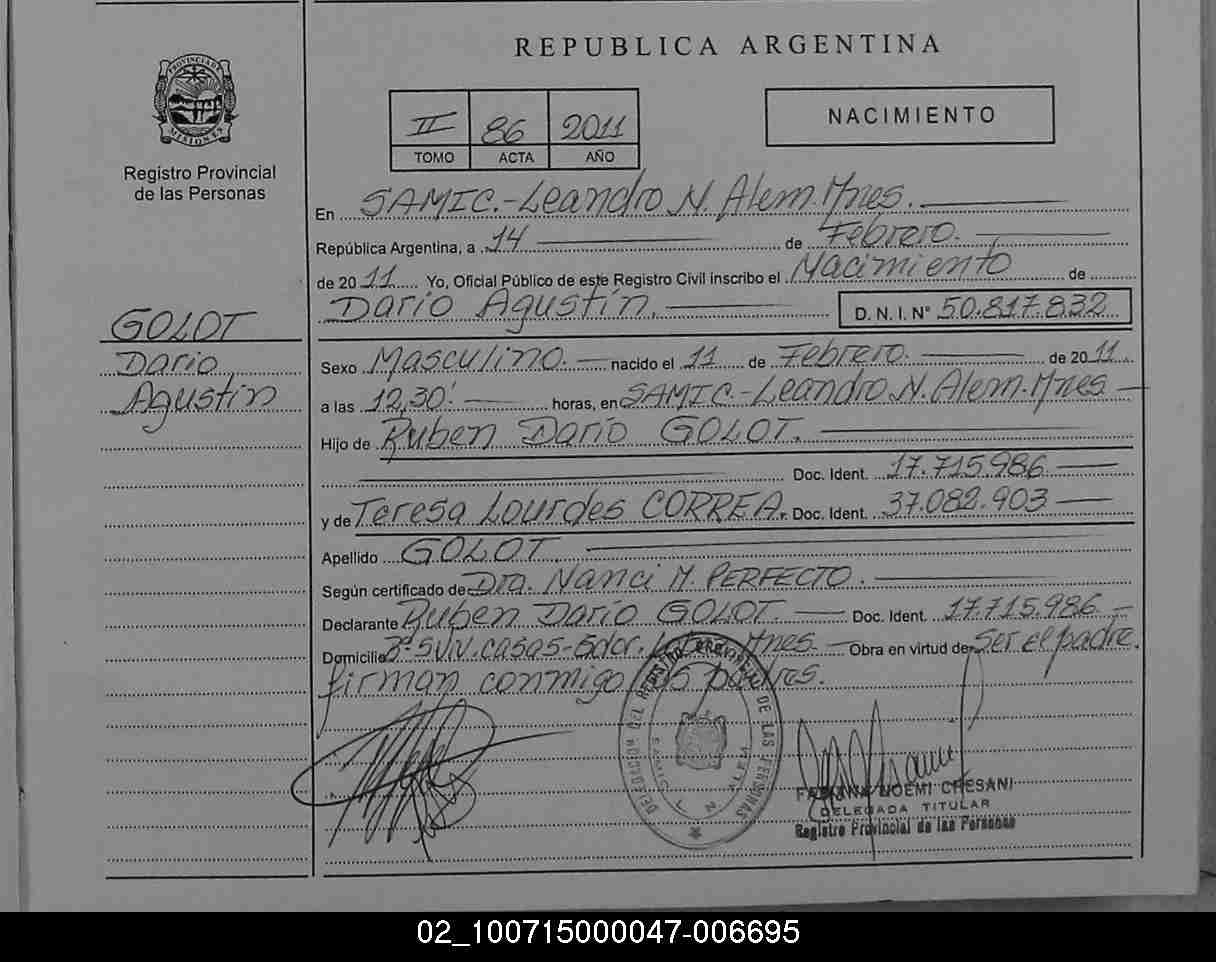 REPUBLICA ARGENTINA
PROVINCIA DE MISIONES
Registro Provincial
de las Personas
II 86 2011
TOMO ACTA AÑO
NACIMIENTO
En SAMIC.-Leandro N. Alem. Mnes.
República Argentina, a 14 de Febrero.
de 2011 Yo, Oficial Público de este Registro Civil inscribo el Nacimiento de
Dario Agustín. D. N. I. N° 50.817.832
GOLOT
Dario
Agustín
Sexo Masculino. nacido el 11 de Febrero. de 2011
a las 12,30' horas, en SAMIC.-Leandro N. Alem. Mnes
Hijo de Ruben Darío GOLOT.
Doc. Ident. 17.715.986
y de Teresa Lourdes CORREA. Doc. Ident. 37.082.903
Apellido GOLOT
Según certificado de Dra. Nanci M. PERFECTO.
Declarante Ruben Darío GOLOT. Doc. Ident. 17.715.986
Domicilio viv. casas- Mnes. Obra en virtud de ser el padre.
firman conmigo los padres.
DEL REGISTRO PROVINCIAL DE LAS PERSONAS
SAMIC L N ALEM
NOEMI CRESANI
DELEGADA TITULAR
Registro Provincial de las Personas
02_100715000047-006695